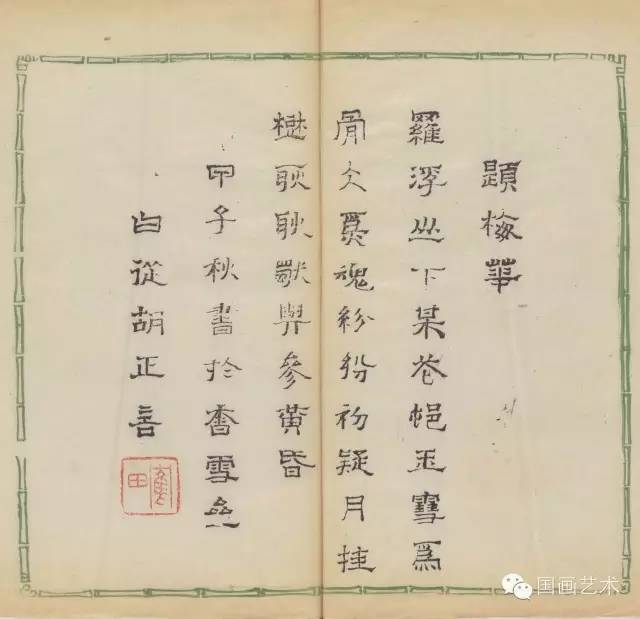 題梅華
羅浮山下某花邨玉雪爲
骨仌爲魂紛紛初疑月挂
樹耿耿獨與參黃昏
甲子秋書於香雪
白從胡正言
国画艺术